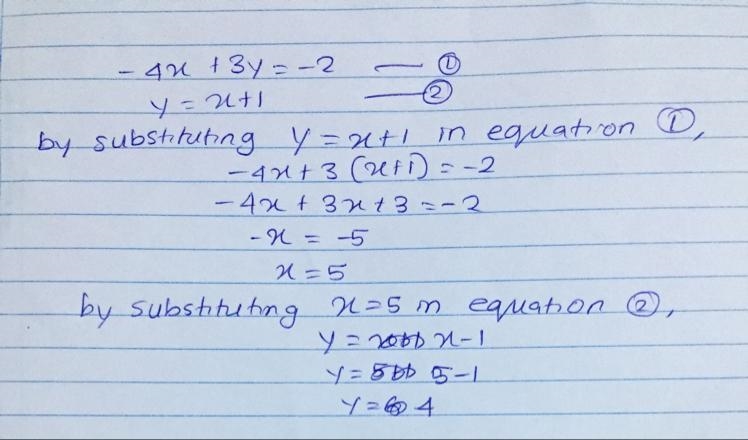 -4x + 3y = -2 — ①
y = x+1 — ②
by substituting y = x+1 in equation ①,
-4x + 3 (x+1) = -2
-4x + 3x + 3 = -2
-x = -5
x = 5
by substituting x=5 in equation ②,
y = x-1
y = 5-1
y = 4